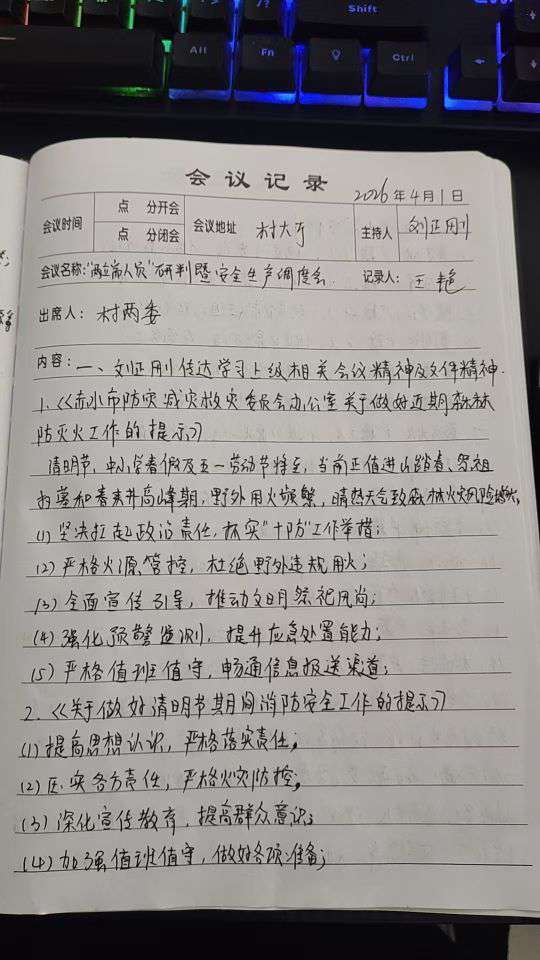 Shift
Alt
Fn
Ctrl
会议记录
2026年4月1日
会议时间
点 分开会
点 分闭会
会议地址
村大厅
主持人
刘正刚
会议名称："两立席人员"研判暨安全生产调度会
记录人：王艳
出席人：村两委
内容：一、刘正刚传达学习上级相关会议精神及文件精神.
1.《赤水市防灾减灾救灾委员会办公室关于做好近期森林
防灭火工作的提示》
清明节、中小学春假及五一劳动节将至，当前正值进山踏春、祭祖
扫墓和春耒升高峰期，野外用火频繁，晴热天气致森林火灾风险增大。
(1) 坚决扛起政治责任，抓实"十防"工作举措；
(2) 严格火源管控，杜绝野外违规用火；
(3) 全面宣传引导，推动文明祭祀风尚；
(4) 强化预警监测，提升应急处置能力；
(5) 严格值班值守，畅通信息报送渠道；
2.《关于做好清明节期间消防安全工作的提示》
(1) 提高思想认识，严格落实责任。
(2) 压实各方责任，严格火灾防控。
(3) 深化宣传教育，提高群众意识；
(4) 加强值班值守，做好各项准备；